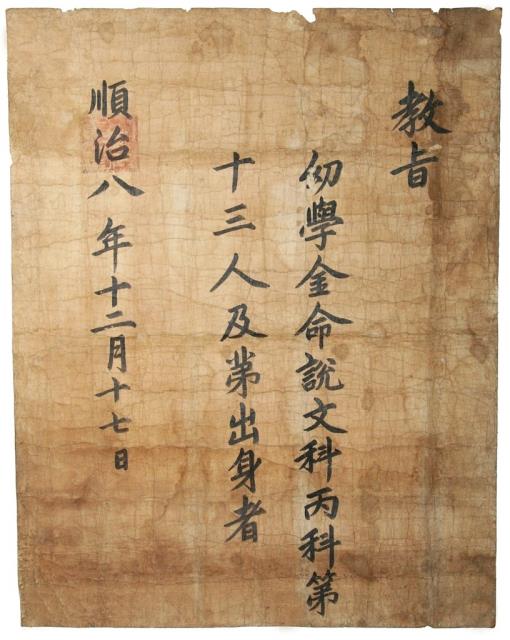 教旨
幼學金命說文科丙科第
十三人及第出身者
順治八年十二月十七日